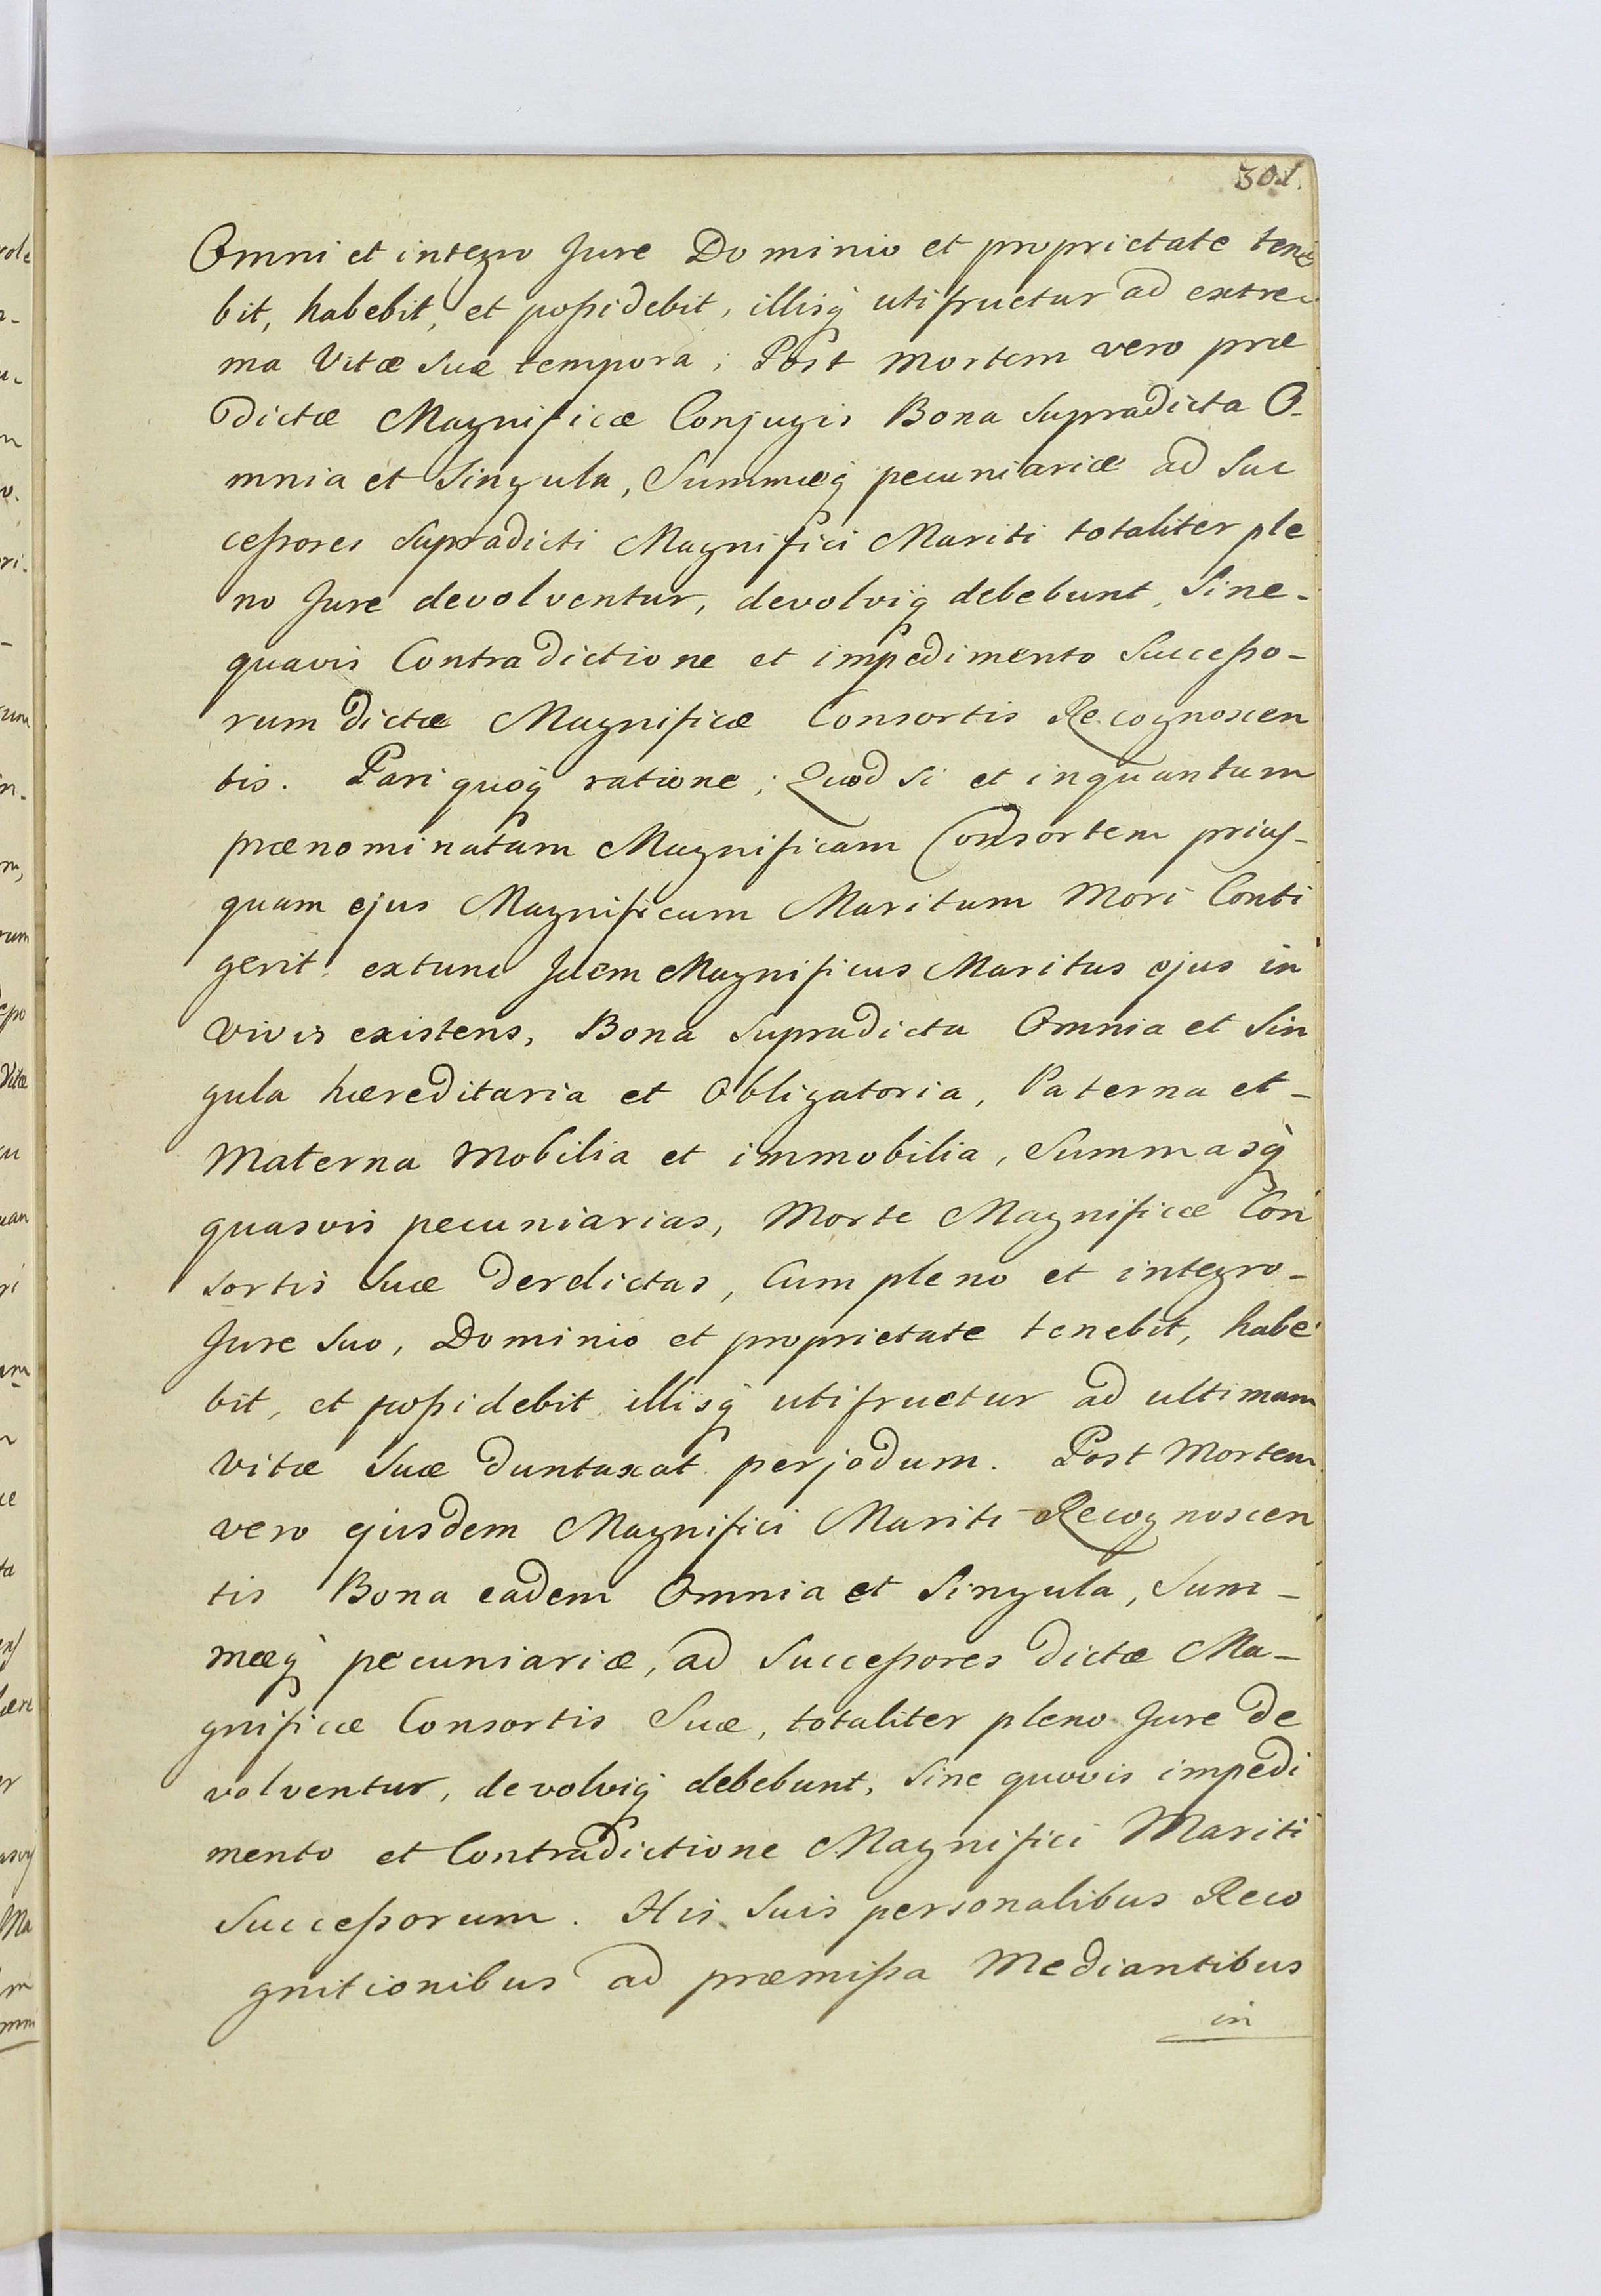 301.
Omni et integro Jure Dominio et proprietate tene
bit, habebit, et poſsidebit, illisq utifruetur ad extre-
ma Vitæ suæ tempora; Post Mortem vero præ
dictæ Magnificæ Conjugis Bona Supradicta O-
mnia et Singula, Summæq pecuniariæ ad Suc
ceſsores Supradicti Magnifici Mariti totaliter ple
no Jure devolventur, devolviq debebunt, Sine-
quavis Contradictione et impedimento Succeſso-
rum dictæ Magnificæ Consortis Recognoscen
tis. Pari quoq ratione; Quod si et inquantum
prænominatam Magnificam Consortem priuſ-
quam ejus Magnificum Maritum Mori Conti
gerit: extunc Idem Magnificus Maritus ejus in
vivis existens, Bona Supradicta Omnia et Sin
gula hæreditaria et Obligatoria, Paterna et-
Materna Mobilia et immobilia, Summasq
quasvis pecuniarias, Morte Magnificæ Con
sortis Suæ derelictas, Cum pleno et integro-
Jure Suo, Dominio et proprietate tenebit, habe
bit, et poſsidebit illisq utifruetur ad ultimam
vitæ Suæ duntaxat perjodum. Post Mortem
vero ejusdem Magnifici Mariti Recognoscen
tis Bona eadem Omnia et Singula, Sum-
mæq pecuniariæ, ad Succeſsores dictæ Ma-
gnificæ Consortis Suæ, totaliter pleno Jure de
volventur, devolviq debebunt, Sine quovis impedi
mento et Contradictione Magnifici Mariti
Succeſsorum. His Suis personalibus Reco
gnitionibus ad præmiſsa Mediantibus
in